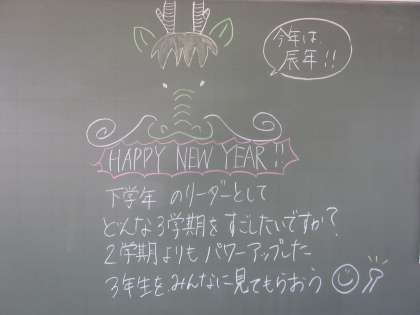 今年は、
辰年!!
HAPPY NEW YEAR!!
下学年のリーダーとして
どんな3学期をすごしたいですか?
2学期よりもパワーアップした
3年生をみんなに見てもらおう